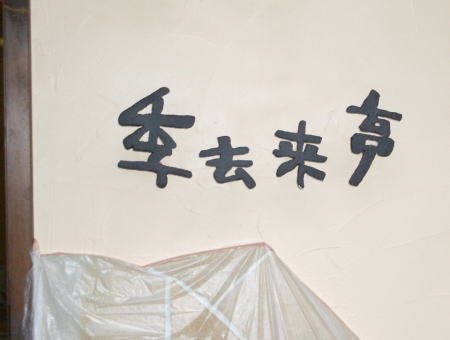 季去来亭